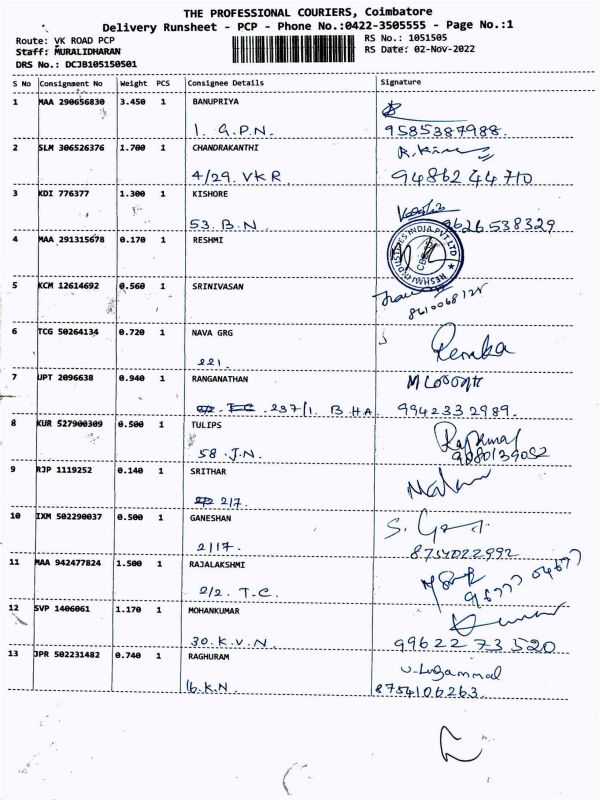 THE PROFESSIONAL COURIERS, Coimbatore
Delivery Runsheet - PCP - Phone No.:0422-3505555 - Page No.:1
Route: VK ROAD PCP
Staff: MURALIDHARAN
DRS No.: DCJB105150501
RS No.: 1051505
RS Date: 02-Nov-2022
S No Consignment No Weight PCS Consignee Details Signature
1 MAA 290656830 3.450 1 BANUPRIYA
1. G.P.N. 9585387988.
2 SLM 306526376 1.700 1 CHANDRAKANTHI
4/29. VKR. 94862 44710
3 KDI 776377 1.300 1 KISHORE
53. B.N. 9626538329
4 MAA 291315678 0.170 1 RESHMI
RESHMI INDUSTRIES INDIA PVT LTD
5 KCM 12614692 0.560 1 SRINIVASAN
6 TCG 50264134 0.720 1 NAVA GRG
221. Renuka
7 UPT 2096638 0.940 1 RANGANATHAN
237/1. B.H.A. 9942332989.
8 KUR 527900309 0.500 1 TULIPS
58. J.N. 9080139052
9 RJP 1119252 0.140 1 SRITHAR
2/7.
10 IXM 502290037 0.500 1 GANESHAN
2/17. 8754022992
11 MAA 942477824 1.500 1 RAJALAKSHMI
2/2. T.C. 96777 04677
12 SVP 1406061 1.170 1 MOHANKUMAR
30. K.V.N. 99622 73520
13 JPR 502231482 0.740 1 RAGHURAM
16. K.N. 8754106263.